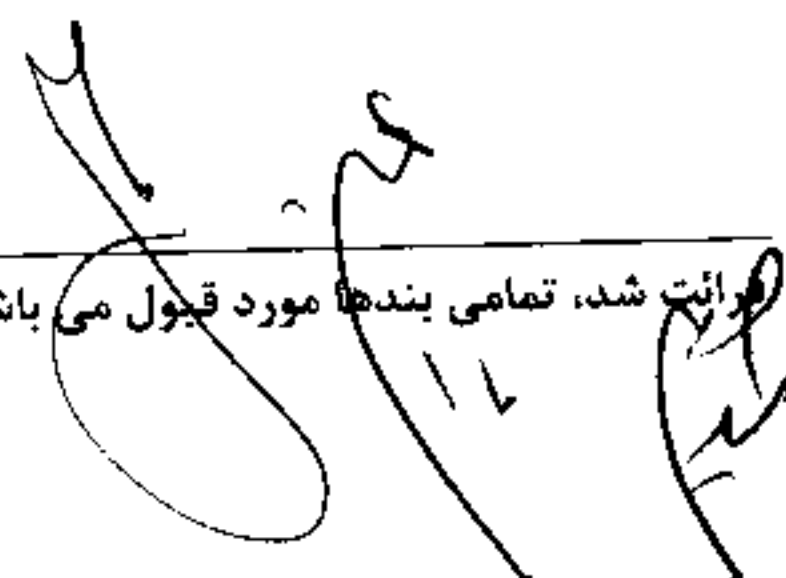 قرائت شد، تمامی بندها مورد قبول می باش